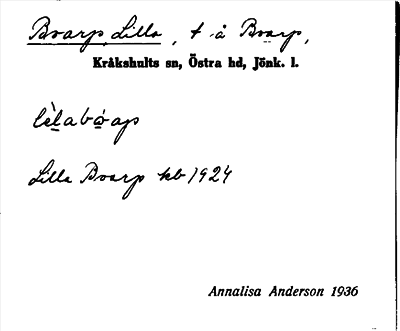 Boarp, Lilla, t. å Boarp,
Kråkshults sn, Östra hd, Jönk. l.
lèlabóap
Lilla Boarp kb 1924
Annalisa Anderson 1936